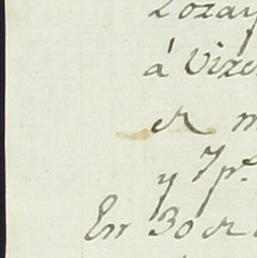 Lozay
á Vize
de m
y 7 ps.
En 30 de